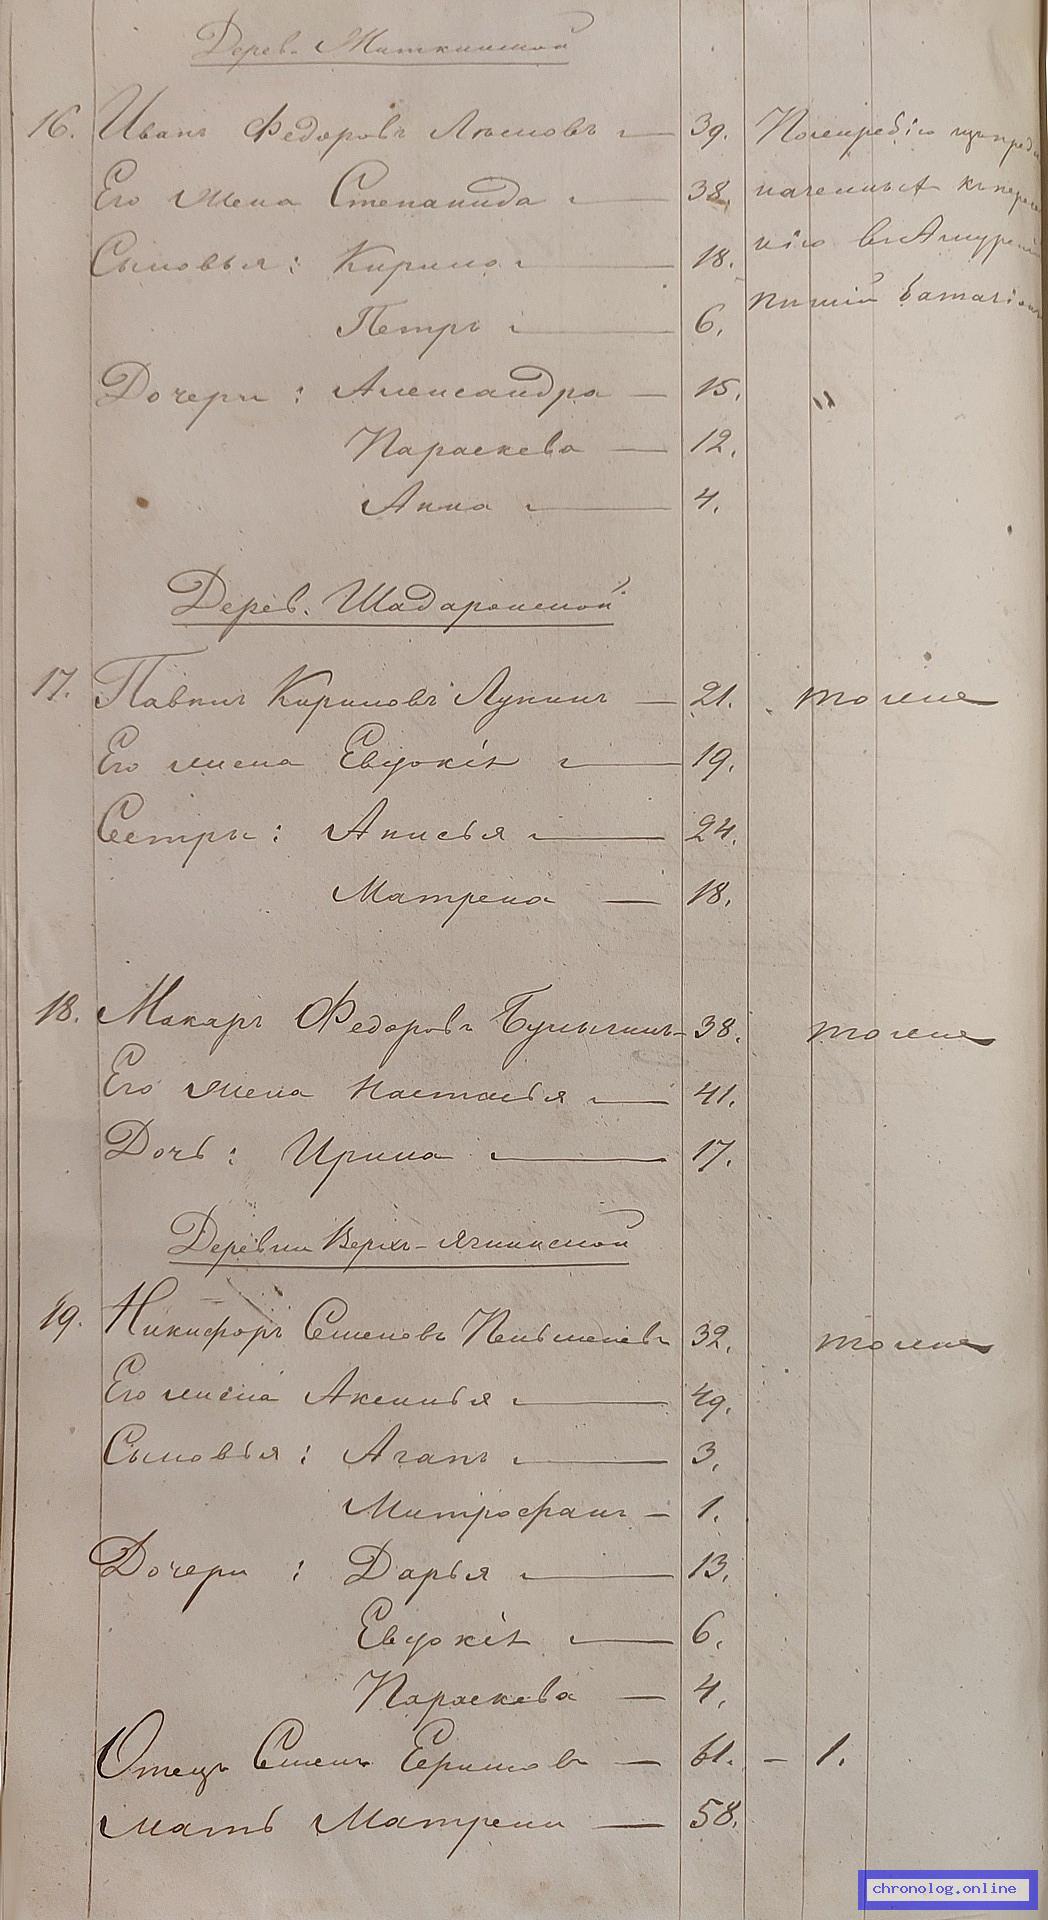 Дерев. Миткинской
16. Иванъ Федоровъ 39. По жеребью изъ предна
Его жена Степанида 38. значенныхъ къ пересе
Сыновья: Кирило 18. нію въ Амурскій
Петръ 6. пѣшій баталіонъ
Дочери: Александра 15. "
Параскева 12.
Анна 4.
Дерев. Шадаронской
17. Павилъ Кириловъ Лукинъ 21. тоже
Его жена Евдокія 19.
Сестры: Анисья 24.
Матрена 18.
18. Макаръ Федоровъ 38. тоже
Его жена Настасья 41.
Дочь: Ирина 17.
Деревни Верхъ-Ягнинской
19. Никифоръ Семеновъ Пельменевъ 32. тоже
Его жена Аксинья 49.
Сыновья: Агапъ 3.
Митрофанъ 1.
Дочери: Дарья 13.
Евдокія 6.
Параскева 4.
Отецъ Семенъ 61. - 1.
мать Матрена 58.
chronolog.online